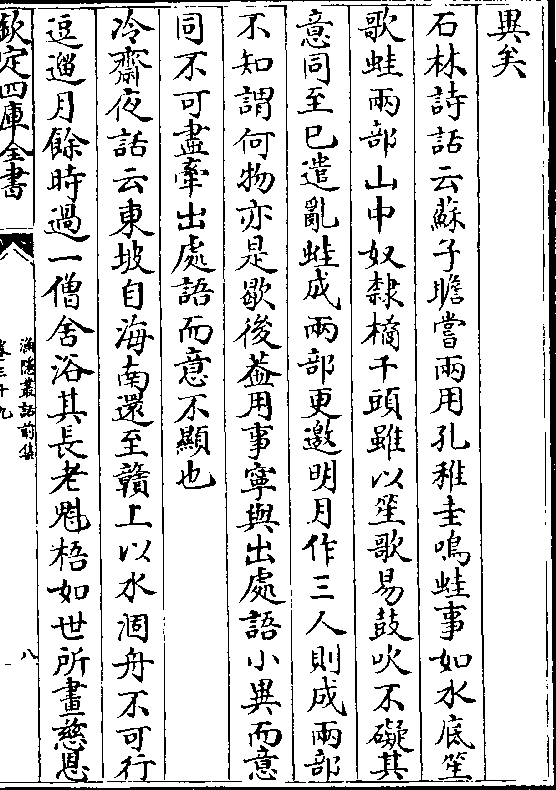 異矣
石林詩話云蘇子瞻嘗兩用孔稚圭鳴蛙事如水底笙
歌蛙兩部山中奴隸橘千頭雖以笙歌易鼓吹不礙其
意同至已遣亂蛙成兩部更邀明月作三人則成兩部
不知謂何物亦是歇後葢用事寧與出處語小異而意
同不可盡牽出處語而意不顯也
冷齋夜話云東坡自海南還至贛上以水涸舟不可行
逗遛月餘時過一僧舍浴其長老魁梧如世所畫慈恩
欽定四庫全書
漁隱叢話前集
卷三十九
八